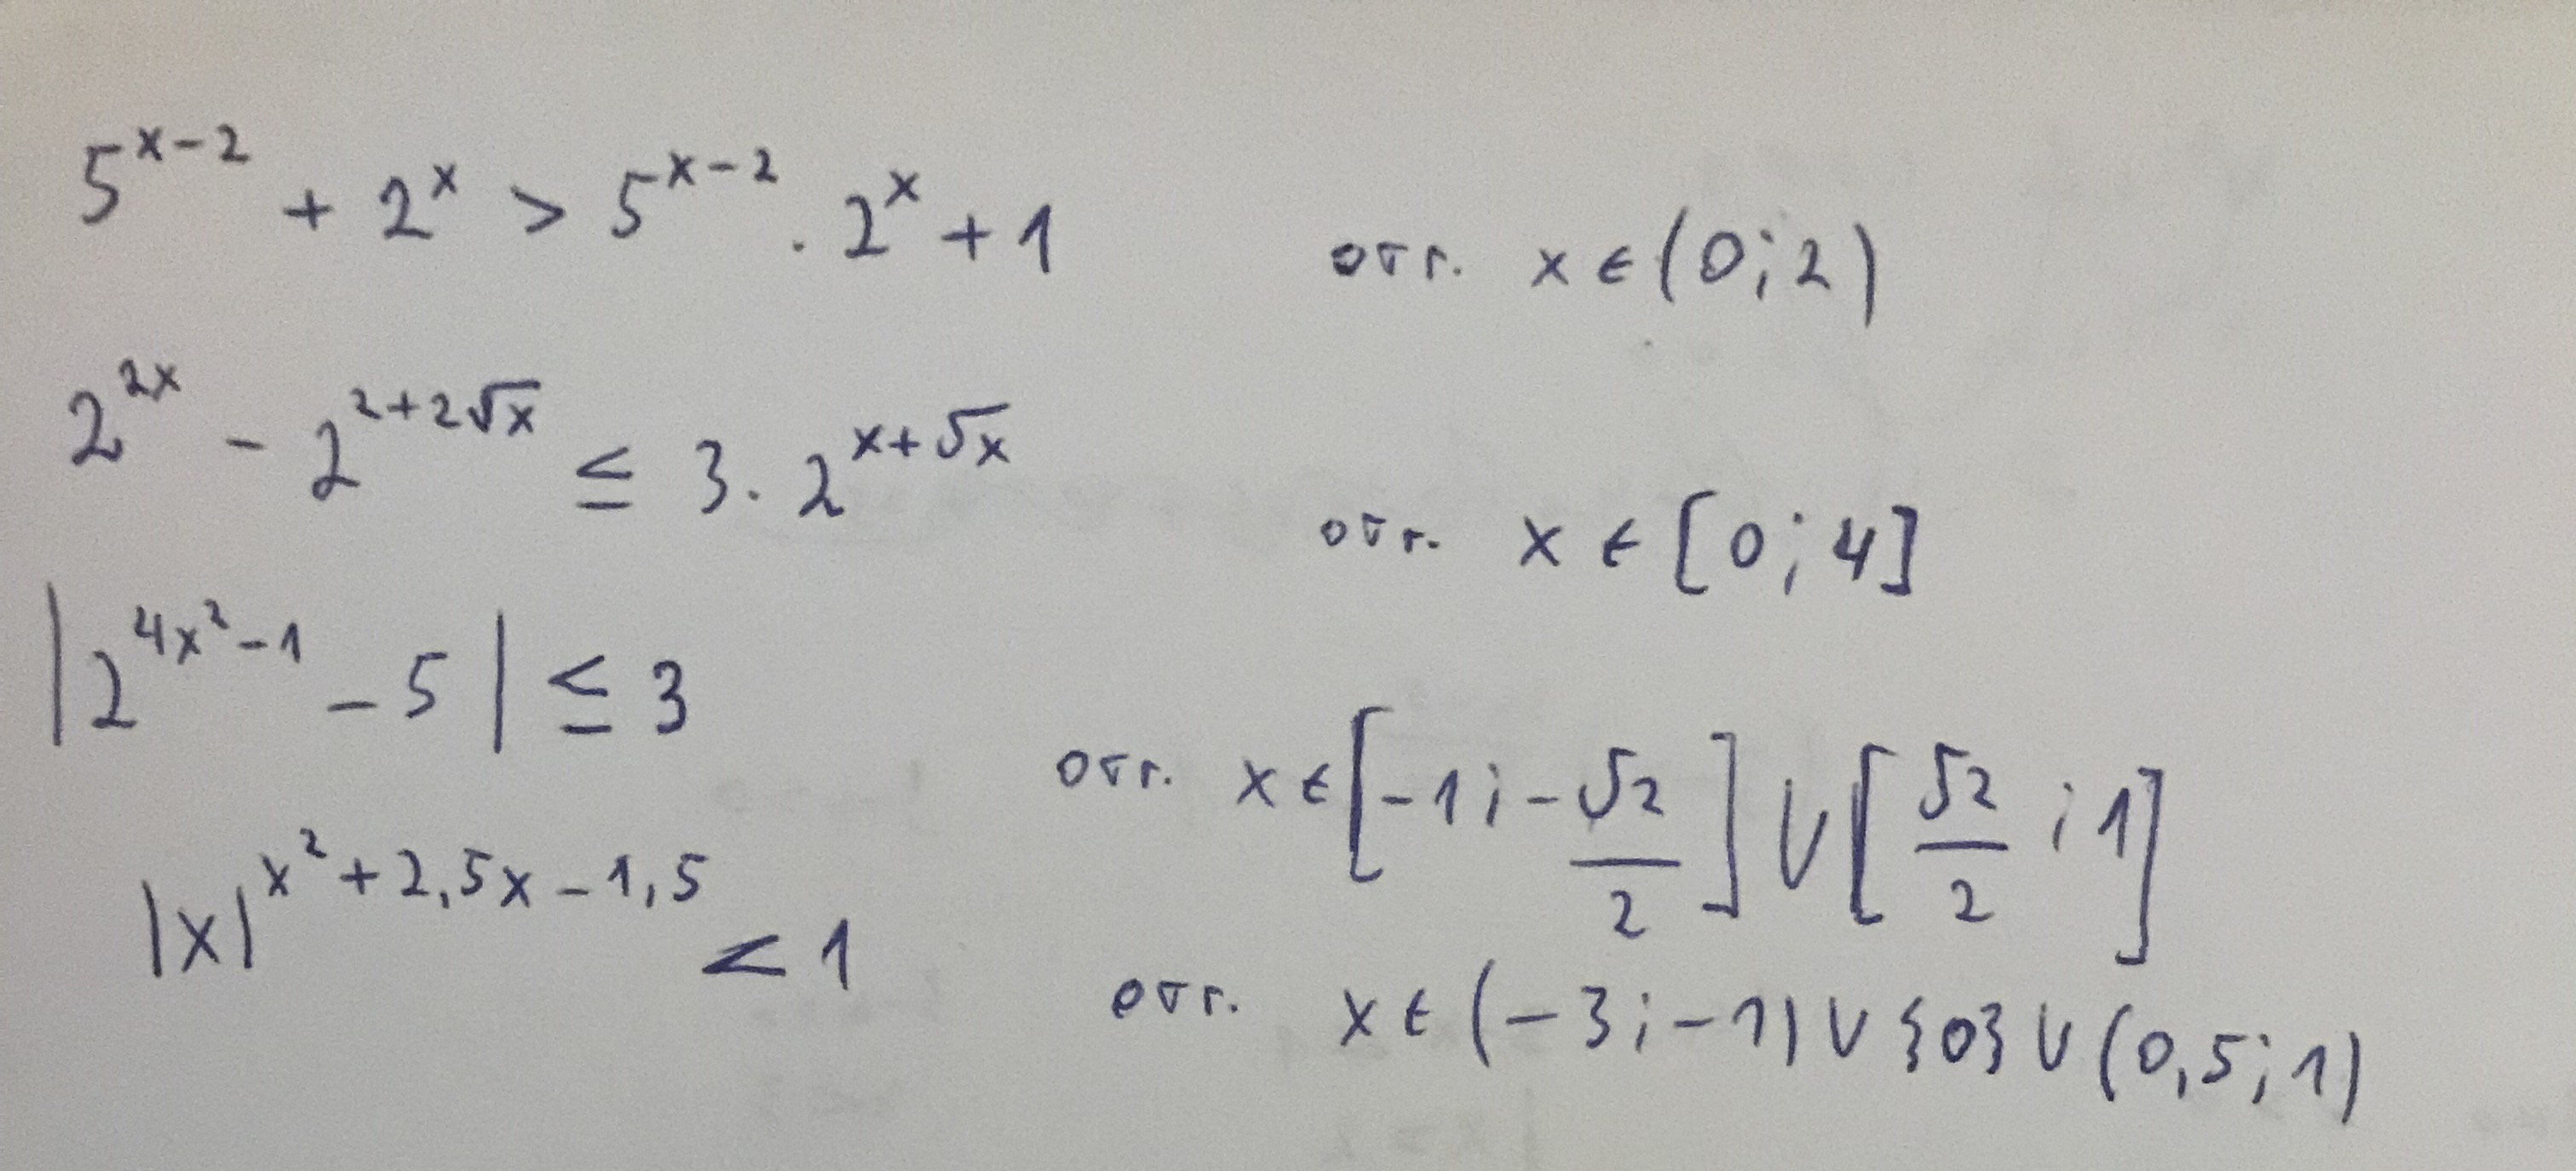 5^{x-2} + 2^x > 5^{x-2} · 2^x + 1    отг. x ∈ (0; 2)
2^{2x} - 2^{2+2√x} ≤ 3 · 2^{x+√x}    отг. x ∈ [0; 4]
|2^{4x²-1} - 5| ≤ 3    отг. x ∈ [-1; -√2/2] ∪ [√2/2; 1]
|x|^{x²+2,5x-1,5} < 1    отг. x ∈ (-3; -1) ∪ {0} ∪ (0,5; 1)